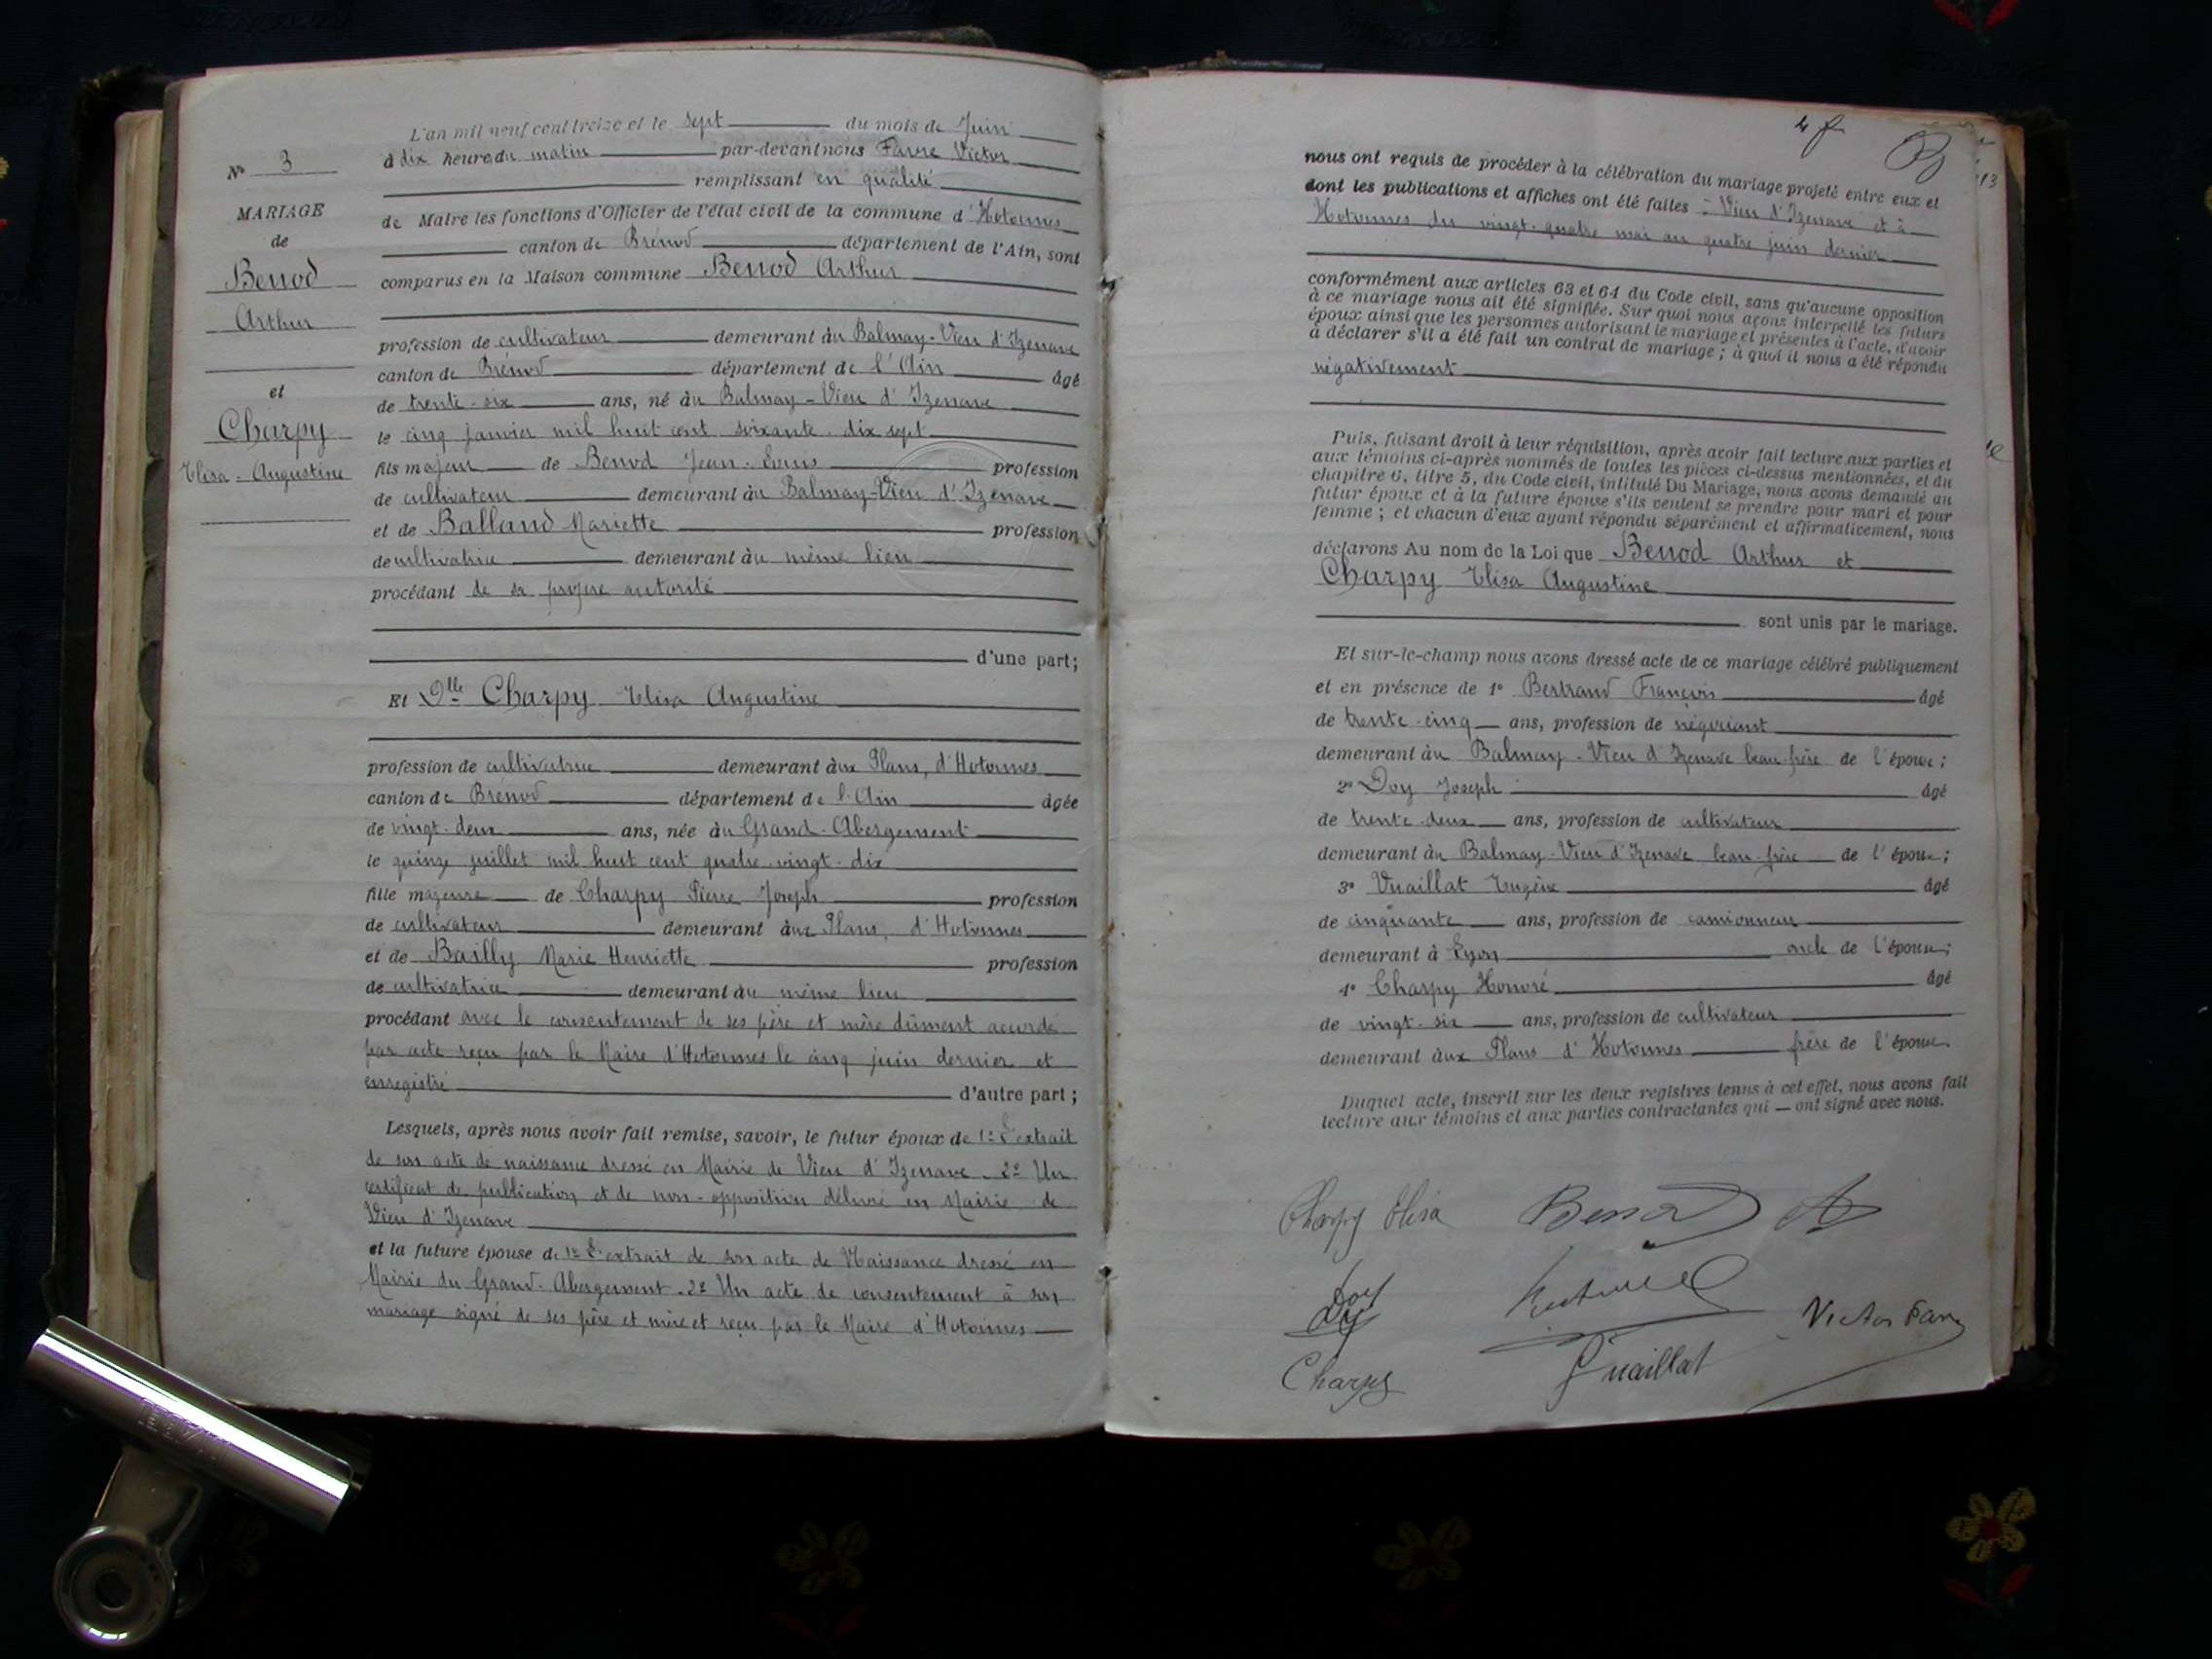 L'an mil neuf cent treize et le sept du mois de Juin
à dix heure du matin par-devant nous Favre Victor
remplissant en qualité
de Maire les fonctions d'Officier de l'état civil de la commune d'Hotonnes
canton de Brénod département de l'Ain, sont
comparus en la Maison commune Benod Arthur
profession de cultivateur demeurant à u Balmay-Vieu d'Izenave
canton de Brénod département de l'Ain âgé
de trente-six ans, né à u Balmay-Vieu d'Izenave
le cinq janvier mil huit cent soixante-dix sept
fils majeur de Benod Jean-Louis profession
de cultivateur demeurant à u Balmay-Vieu d'Izenave
et de Balland Mariette profession
de cultivatrice demeurant à u même lieu
procédant de sa propre autorité
d'une part;
Et Dlle Charpy Elisa Augustine
profession de cultivatrice demeurant à ux Plans, d'Hotonnes
canton de Brénod département de l'Ain âgée
de vingt-deux ans, née à u Grand-Abergement
le quinze juillet mil huit cent quatre-vingt-dix
fille majeure de Charpy Pierre Joseph profession
de cultivateur demeurant à ux Plans, d'Hotonnes
et de Bailly Marie Henriette profession
de cultivatrice demeurant à u même lieu
procédant avec le consentement de ses père et mère dûment accordé
par acte reçu par le Maire d'Hotonnes le cinq juin dernier et
enregistré d'autre part;
Lesquels, après nous avoir fait remise, savoir, le futur époux de 1º L'extrait
de son acte de naissance dressé en Mairie de Vieu d'Izenave. 2º Un
certificat de publication et de non-opposition délivré en Mairie de
Vieu d'Izenave
et la future épouse de 1º L'extrait de son acte de Naissance dressé en
Mairie du Grand-Abergement. 2º Un acte de consentement à son
mariage signé de ses père et mère et reçu par le Maire d'Hotonnes
Nº 3
MARIAGE
de
Benod
Arthur
et
Charpy
Elisa-Augustine
4 f
13
nous ont requis de procéder à la célébration du mariage projeté entre eux et
dont les publications et affiches ont été faites à Vieu d'Izenave et à
Hotonnes du vingt-quatre mai au quatre juin dernier
conformément aux articles 63 et 64 du Code civil, sans qu'aucune opposition
à ce mariage nous ait été signifiée. Sur quoi nous avons interpellé les futurs
époux ainsi que les personnes autorisant le mariage et présentes à l'acte, d'avoir
à déclarer s'il a été fait un contrat de mariage; à quoi il nous a été répondu
négativement
Puis, faisant droit à leur réquisition, après avoir fait lecture aux parties et
aux témoins ci-après nommés de toutes les pièces ci-dessus mentionnées, et du
chapitre 6, titre 5, du Code civil, intitulé Du Mariage, nous avons demandé au
futur époux et à la future épouse s'ils veulent se prendre pour mari et pour
femme; et chacun d'eux ayant répondu séparément et affirmativement, nous
déclarons Au nom de la Loi que Benod Arthur et
Charpy Elisa Augustine
sont unis par le mariage.
Et sur-le-champ nous avons dressé acte de ce mariage célébré publiquement
et en présence de 1º Bertrand François âgé
de trente-cinq ans, profession de négociant
demeurant à u Balmay-Vieu d'Izenave beau-frère de l'époux;
2º Doy Joseph âgé
de trente-deux ans, profession de cultivateur
demeurant à u Balmay-Vieu d'Izenave beau-frère de l'époux;
3º Vuaillat Eugène âgé
de cinquante ans, profession de camionneur
demeurant à Lyon oncle de l'épouse;
4º Charpy Honoré âgé
de vingt-six ans, profession de cultivateur
demeurant à ux Plans d'Hotonnes frère de l'épouse.
Duquel acte, inscrit sur les deux registres tenus à cet effet, nous avons fait
lecture aux témoins et aux parties contractantes qui — ont signé avec nous.
Charpy Elisa Benod A
Doy
Victor Favre
Charpy Vuaillat